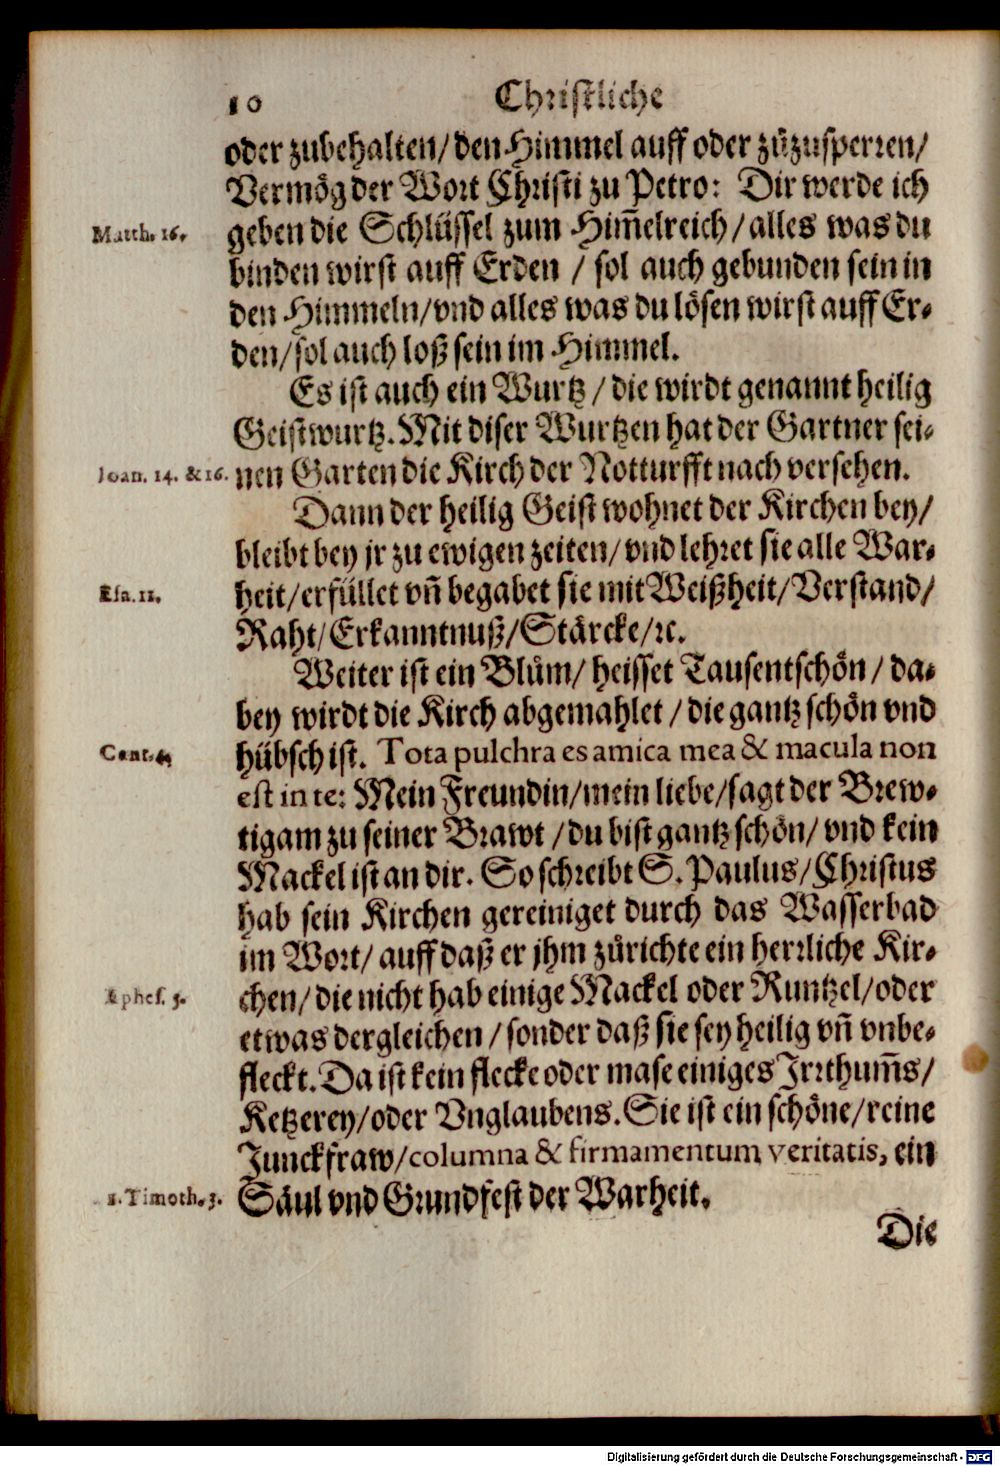 10 Christliche
oder zubehalten/ den Himmel auff oder zůzusperren/
Vermög der Wort Christi zu Petro: Dir werde ich
Matth. 16.
geben die Schlüssel zum Him̃elreich/ alles was du
binden wirst auff Erden / sol auch gebunden sein in
den Himmeln/ vnd alles was du lösen wirst auff Er-
den/ sol auch loß sein im Himmel.
Es ist auch ein Wurtz / die wirdt genannt heilig
Geistwurtz. Mit diser Wurtzen hat der Gartner sei-
Joan. 14. & 16.
nen Garten die Kirch der Notturfft nach versehen.
Dann der heilig Geist wohnet der Kirchen bey/
bleibt bey jr zu ewigen zeiten/ vnd lehret sie alle War-
Esa. 11.
heit/ erfüllet vñ begabet sie mit Weißheit/ Verstand/
Raht/ Erkanntnuß/ Stärcke/ ꝛc.
Weiter ist ein Blům/ heisset Tausentschön / da-
bey wirdt die Kirch abgemahlet / die gantz schön vnd
Cant. 4.
hübsch ist. Tota pulchra es amica mea & macula non
est in te: Mein Freundin/ mein liebe/ sagt der Brew-
tigam zu seiner Brawt / du bist gantz schön/ vnd kein
Mackel ist an dir. So schreibt S. Paulus/ Christus
hab sein Kirchen gereiniget durch das Wasserbad
im Wort/ auff daß er jhm zůrichte ein herrliche Kir-
Ephes. 5.
chen/ die nicht hab einige Mackel oder Runtzel/ oder
etwas dergleichen / sonder daß sie sey heilig vñ vnbe-
fleckt. Da ist kein flecke oder mase einiges Jrrthum̃s/
Ketzerey/ oder Vnglaubens. Sie ist ein schöne/ reine
Junckfraw/ columna & firmamentum veritatis, ein
1. Timoth. 3.
Säul vnd Grundfest der Warheit.
Die
Digitalisierung gefördert durch die Deutsche Forschungsgemeinschaft - DFG